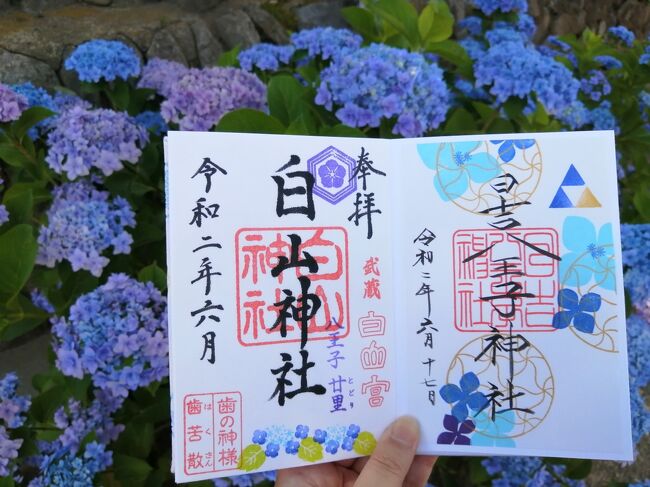 奉拝
白山神社
令和二年六月
白山
神社
武蔵
白山宮
八王子 廿里
とどり
歯の神様
歯苦散
はくさん
日吉八王子神社
令和二年六月十七日